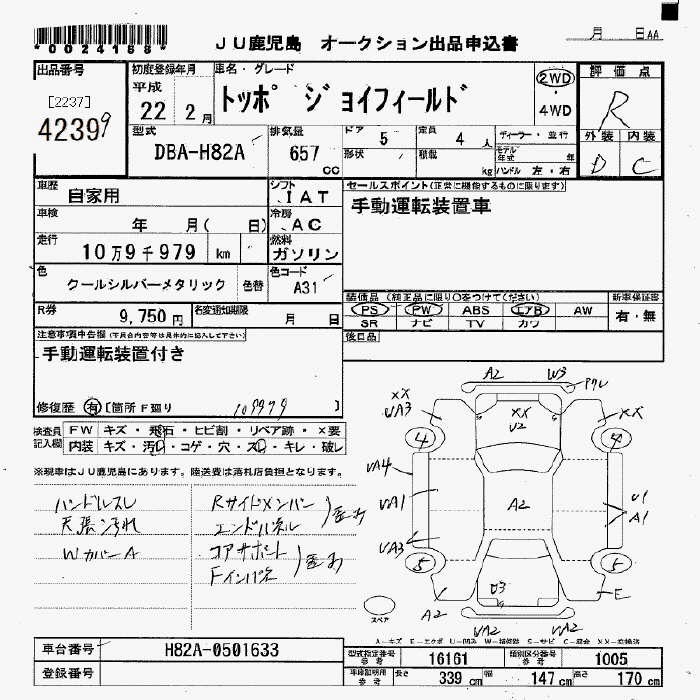 *0024188*
JU鹿児島 オークション出品申込書
月 日 AA
出品番号
[2237]
42399
初度登録年月
平成
22 2月
車名・グレード
トッポ ジョイフィールド
2WD
4WD
評価点
R
外装 内装
D C
型式
DBA-H82A
排気量
657
CC
ドア 5
定員 4 人
形状
積載 kg
ディーラー・並行
モデル年式 年
ハンドル 左・右
車歴
自家用
シフト
IAT
車検
年 月( 日)
冷房
AC
走行
10万9千979 km
燃料
ガソリン
色
クールシルバーメタリック 色替
色コード
A31
セールスポイント(正常に機能するものに限ります)
手動運転装置車
R券
9,750円
名変通知期限
月 日
装備品(純正品に限り○をつけてください)
PS PW ABS エアB AW
SR ナビ TV カワ
新車保証書
有・無
後日品
注意事項申告欄
手動運転装置付き
修復歴 有 [箇所 F廻り ]
109979
検査員記入欄
FW キズ・飛石・ヒビ割・リペア跡・×要
内装 キズ・汚レ・コゲ・穴・スレ・キレ・破レ
※現車はJU鹿児島にあります。陸送費は落札店負担となります。
ハンドルスレ
天張汚れ
WカバーA
Rサイドメンバー
エンドパネル
コアサポート
Fインパネ
A2 W3
XX
UA3
XX
U2
XX
4 4
UA4
UA1
A2
U1
A1
UA3
5 5
U3
A2
E
UA2 UA2
スペア
車台番号
H82A-0501633
登録番号
型式指定番号 参考
16161
類別区分番号 参考
1005
車庫証明用 参考
長さ 339 cm 幅 147 cm 高さ 170 cm